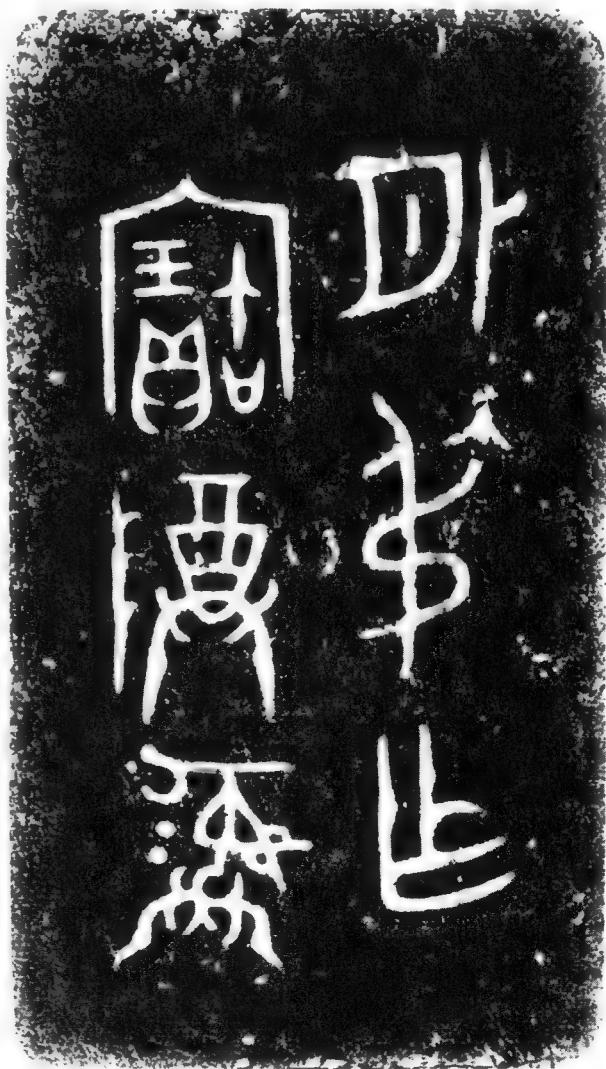 外叔乍
寶尊彝